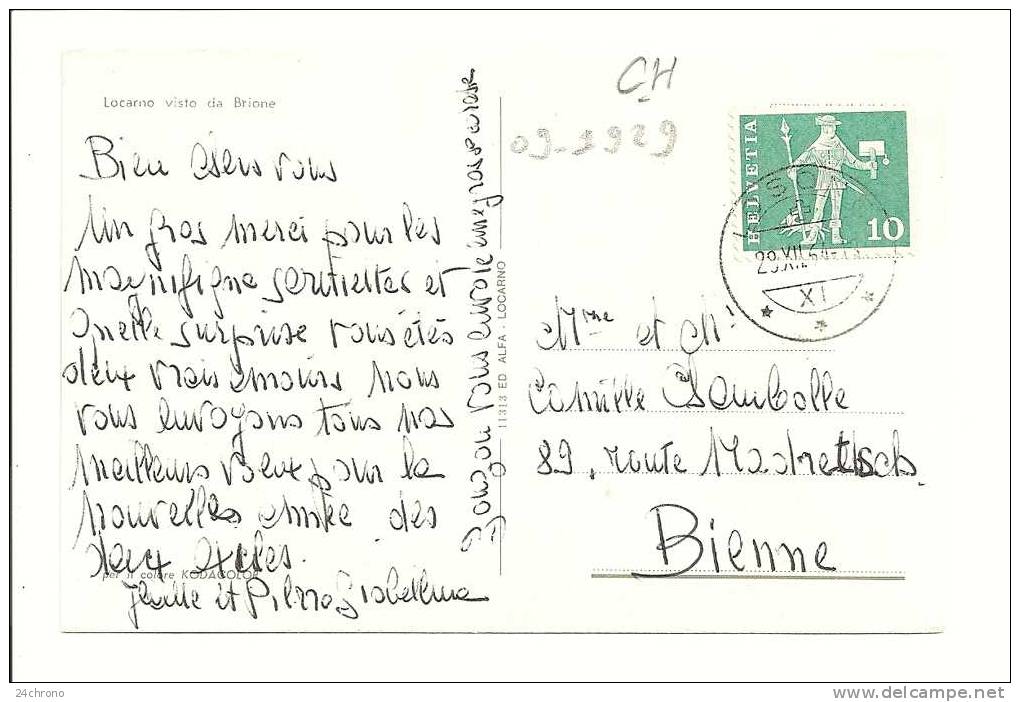 CH
09-1929
Locarno visto da Brione
HELVETIA
10
XI
Bien chers vous
Un gros merci pour les
magnifique serviettes et
quelle surprise vous étés
deux vrais amours nous
vous envoyons tous nos
meilleurs voeux pour la
nouvelles année des
deux exiles.
per il colore KODACOLOR
et Pierro
vous envoie une gros
11313 ED ALFA - LOCARNO
Mme et Mr
Camille
89, route Madretsch
Bienne
24chrono
www.delcampe.net